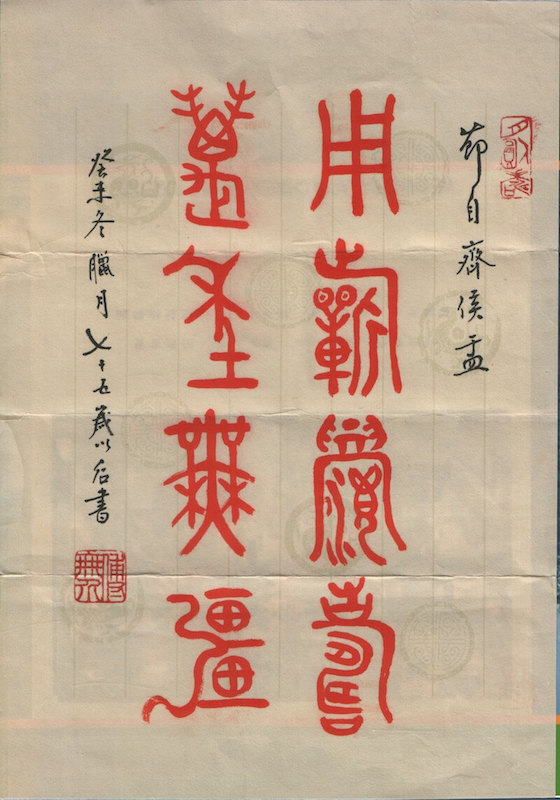 節自齊侯盂
用蘄眉壽
萬年無疆
癸未冬臘月七十五歲以石書